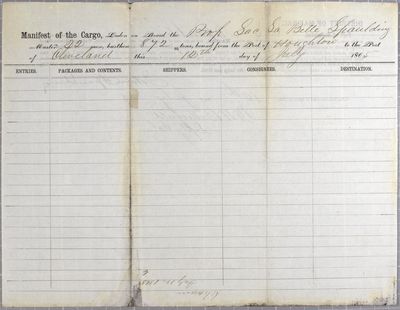 Manifest of the Cargo, Laden on Board the Prop Lac La Belle Spaulding
Master 22 years, burthen 872 tons, bound from the Port of Houghton to the Port
of Cleveland this 12th day of July 186
ENTRIES. PACKAGES AND CONTENTS. SHIPPERS. CONSIGNEES. DESTINATION.